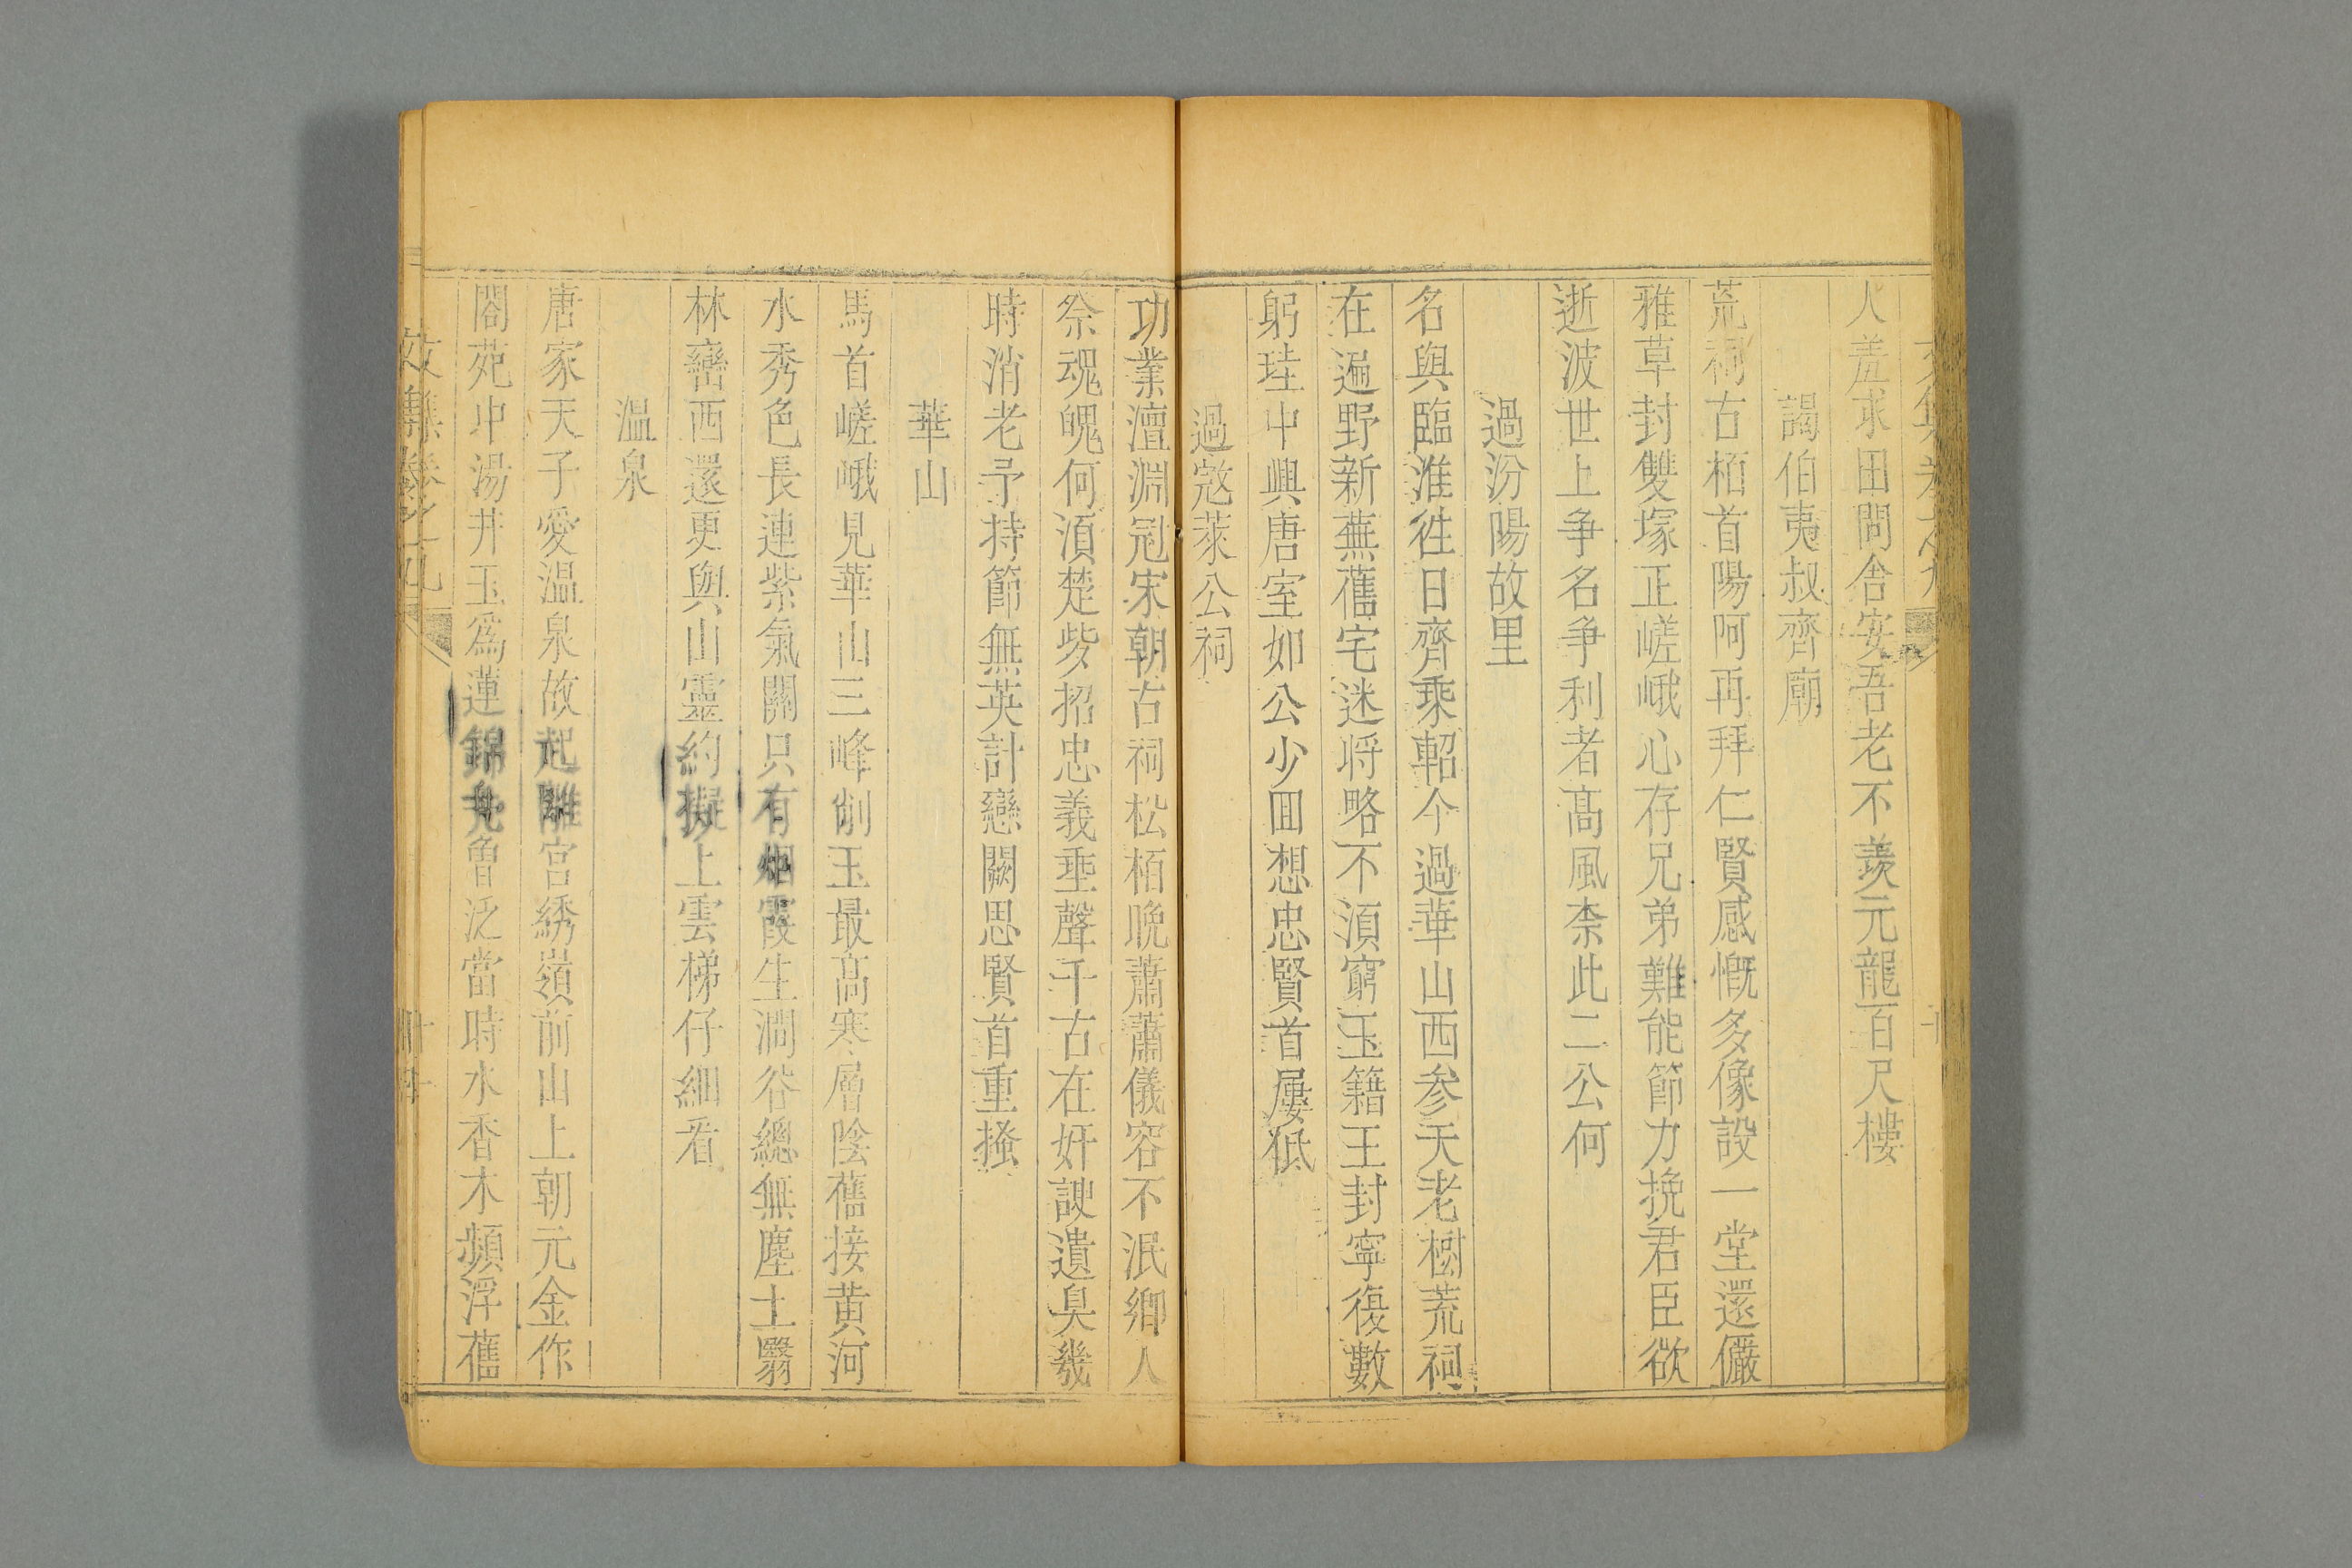 人羞求田問舍安吾老不羨元龍百尺樓
謁伯夷叔齊廟
荒祠古栢首陽阿再拜仁賢感慨多像設一堂還儼
雅草封雙塚正嵯峨心存兄弟難能節力挽君臣欲
逝波世上争名争利者髙風柰此二公何
過汾陽故里
名與臨淮徃日齊乘軺今過華山西参天老樹荒祠
在遍野新蕪舊宅迷将略不湏窮玉籍王封寧復數
躬珪中興唐室如公少囬想忠賢首屢低
過宼萊公祠
功業澶淵冠宋朝古祠松栢晩蕭蕭儀容不泯鄉人
祭魂魄何湏楚些招忠義垂聲千古在奸諛遺臭幾
時消老予持節無英計戀闕思賢首重搔
華山
馬首嵯峨見華山三峰削玉最髙寒層陰舊接黄河
水秀色長連紫氣關只有烟霞生澗谷總無塵土翳
林巒西還更與山靈約擬上雲梯仔細看
温泉
唐家天子愛温泉故起離宫綉嶺前山上朝元金作
閣苑中湯井玉為蓮錦鳬曽泛當時水香木頻浮舊
文集卷之九